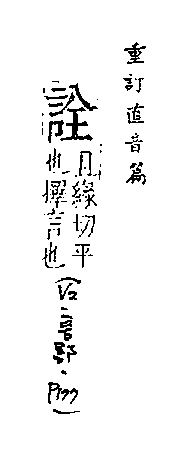 重訂直音篇
詮
且緣切平
也擇言也
言部